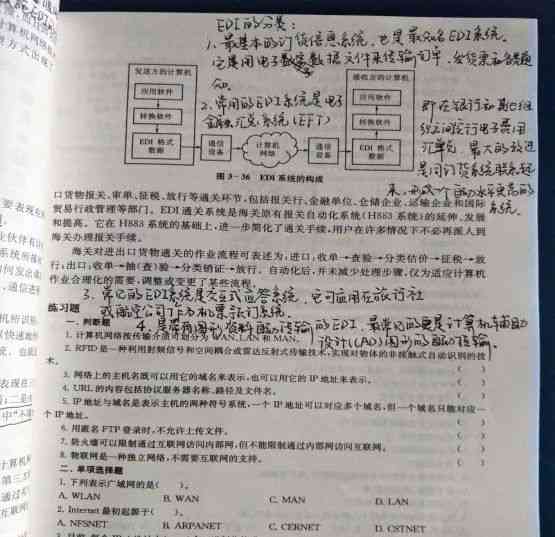 EDI的分类:
1. 最基本的订货信息系统,也是最知名EDI系统。
它是用电子数据文件来传输订单、发货票和各类通知。
2. 常用的EDI系统是电子金融汇兑系统(EFT)
即在银行和其他组织之间实行电子费用汇兑。最大的改进是同订货系统联系起来,形成一个自动化水平更高的系统。
发送方的计算机
应用软件
转换软件
EDI 格式数据
通信设备
计算机网络
通信设备
接收方的计算机
应用软件
转换软件
EDI 格式数据
图 3-36 EDI 系统的构成
口货物报关、审单、征税、放行等通关环节,包括报关行、金融单位、仓储企业、运输企业和国际
贸易行政管理等部门。EDI 通关系统是海关原有报关自动化系统(H883 系统)的延伸、发展
和提高。它在 H883 系统的基础上,进一步简化了通关手续,用户在许多情况下不必再派人到
海关办理报关手续。
海关对进出口货物通关的作业流程可表述为:进口:收单→查验→分类估价→征税→放
行;出口:收单→抽(查)验→分类销证→放行。自动化后,并未减少处理步骤,仅为适应计算机
作业合理化的需要,调整或变更了某些流程。
3. 常见的EDI系统是交互式应答系统,它可应用在旅行社
或航空公司作为机票预订系统。
练习题
4. 是带有图形资料自动传输的EDI,最常见的是计算机辅助
设计(CAD)图形的自动传输。
一、判断题
1. 计算机网络按传输介质可划分为 WAN、LAN 和 MAN。
2. RFID 是一种利用射频信号和空间耦合或雷达反射式传输技术,实现对物体的非接触式自动识别的技
术。 ( )
3. 网络上的主机名既可以用它的域名来表示,也可以用它的 IP 地址来表示。 ( )
4. URL 的内容包括协议服务器名称、路径及文件名。 ( )
5. IP 地址与域名是表示主机的两种符号系统,一个 IP 地址可以对应多个域名,但一个域名只能对应一
个 IP 地址。 ( )
6. 用匿名 FTP 登录时,不允许上传文件。 ( )
7. 防火墙可以限制通过互联网访问内部网,但不能限制通过内部网访问互联网。 ( )
8. 物联网是一种独立网络,不需要互联网的支持。 ( )
二、单项选择题
1. 下列表示广域网的是( )。
A. WLAN B. WAN C. MAN D. LAN
2. Internet 最初起源于( )。
A. NFSNET B. ARPANET C. CERNET D. CSTNET